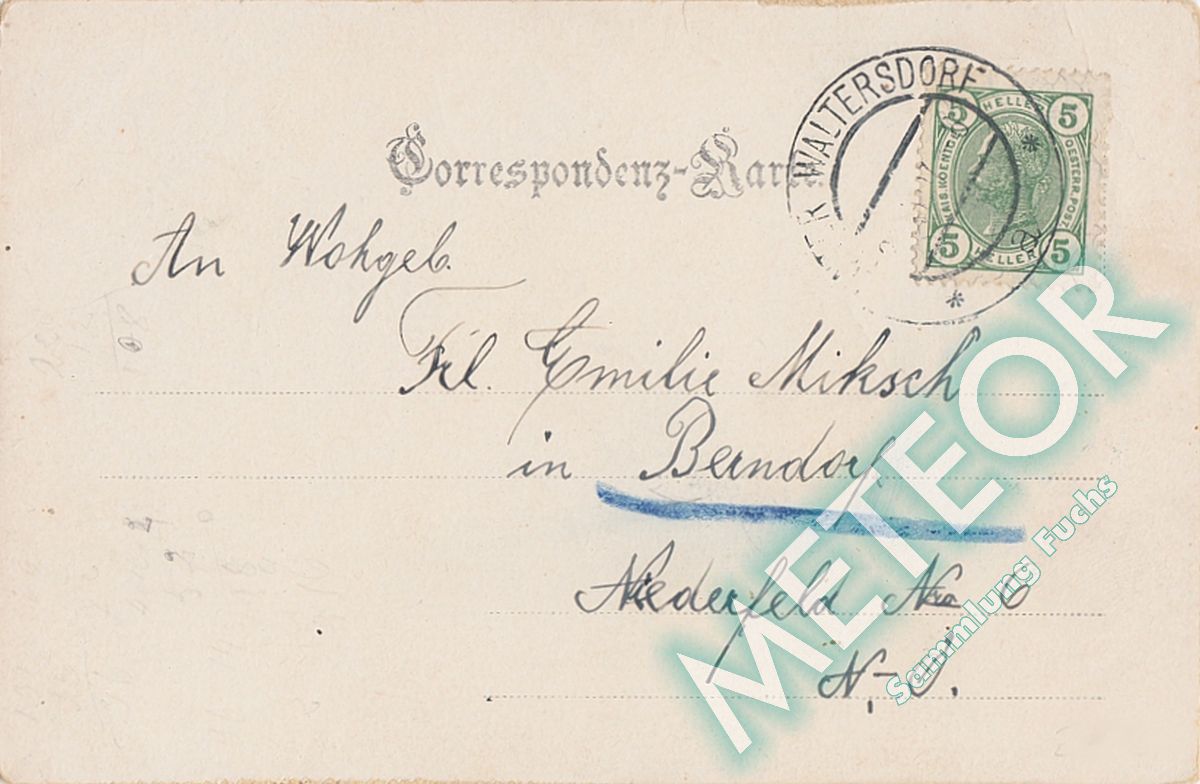 Correspondenz-Karte
TER WALTERSDORF
5 HELLER 5
KAIS. KOENIGL. OESTERR. POST
5 HELLER 5
An Wohgeb.
Frl. Emilie Miksch
in Berndorf
Niederfeld Nro 6
N.-Ö.
METEOR
Sammlung Fuchs